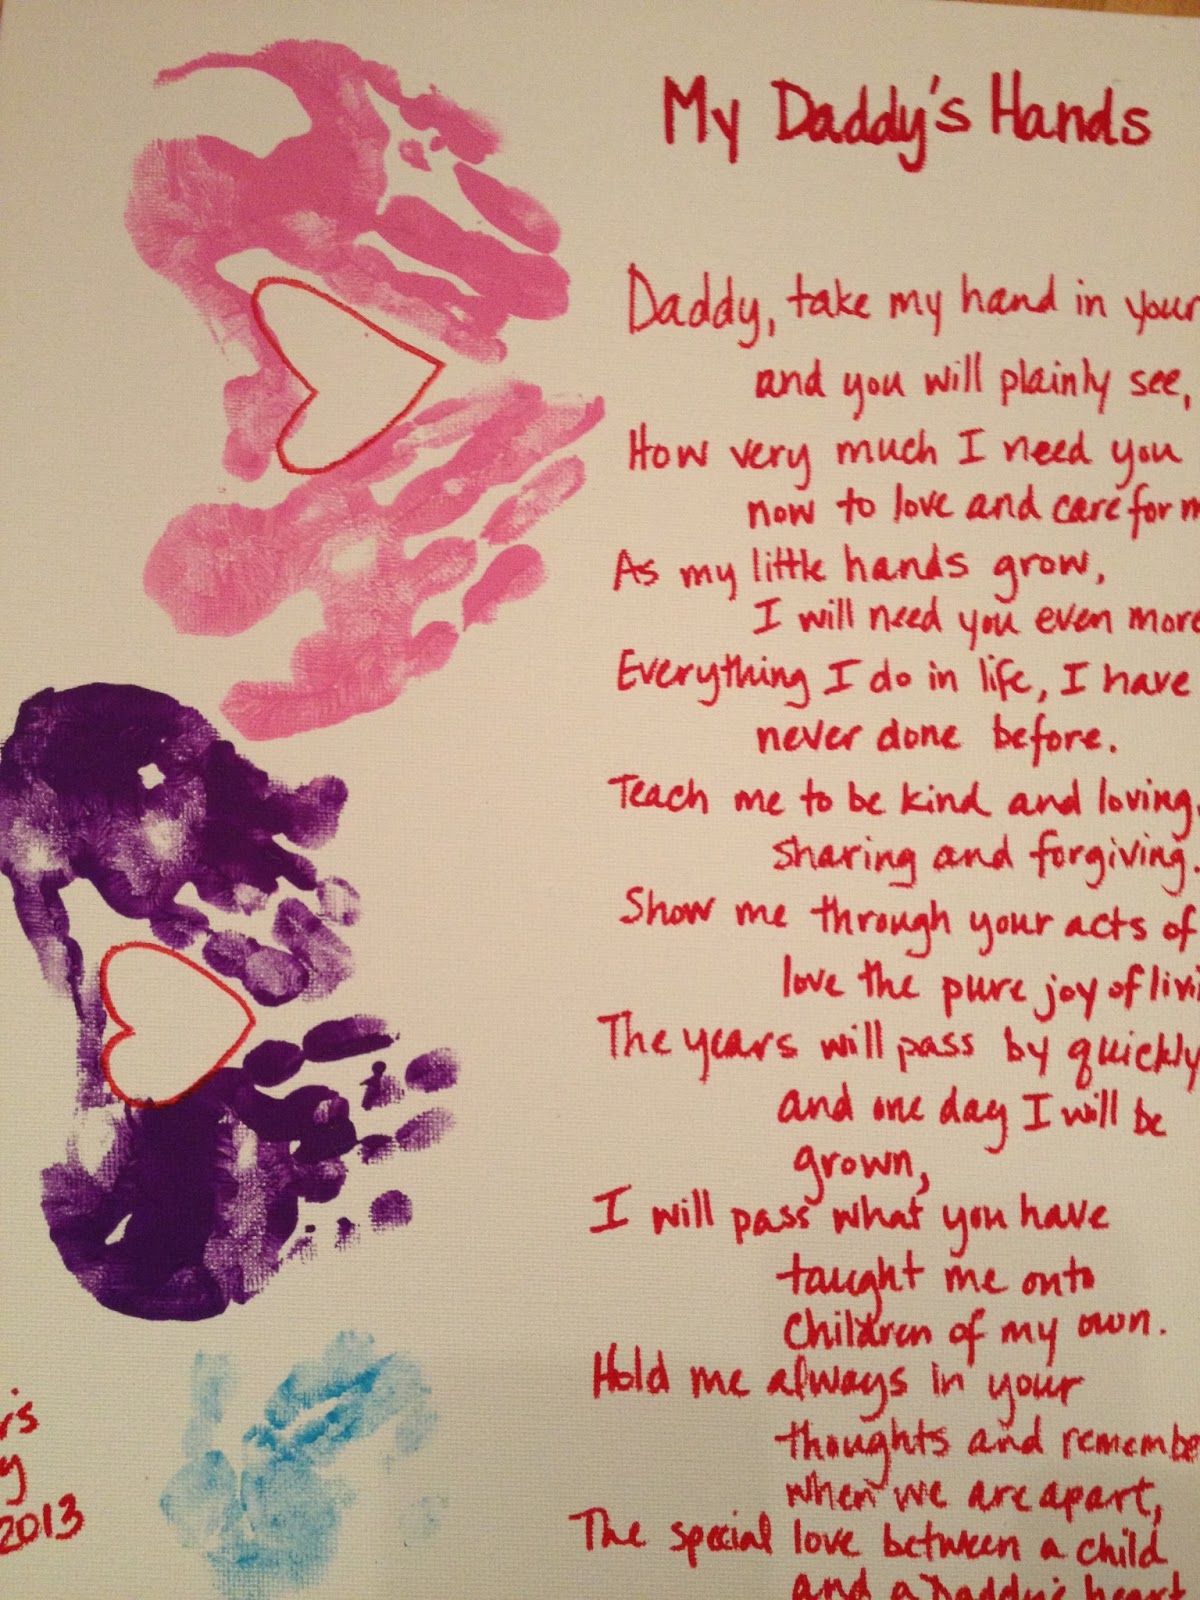 My Daddy's Hands
Daddy, take my hand in your
and you will plainly see,
How very much I need you
now to love and care for m
As my little hands grow,
I will need you even more
Everything I do in life, I have
never done before.
Teach me to be kind and loving,
sharing and forgiving.
Show me through your acts of
love the pure joy of livi
The years will pass by quickly
and one day I will be
grown,
I will pass what you have
taught me onto
children of my own.
Hold me always in your
thoughts and remembe
when we are apart,
The special love between a child
and a Daddy's heart
rs
y
2013